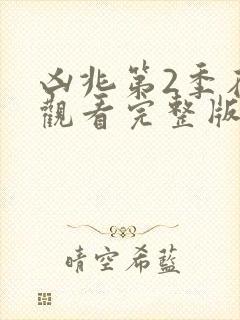 凶兆第2季在
觀看完整版
晴空希藍